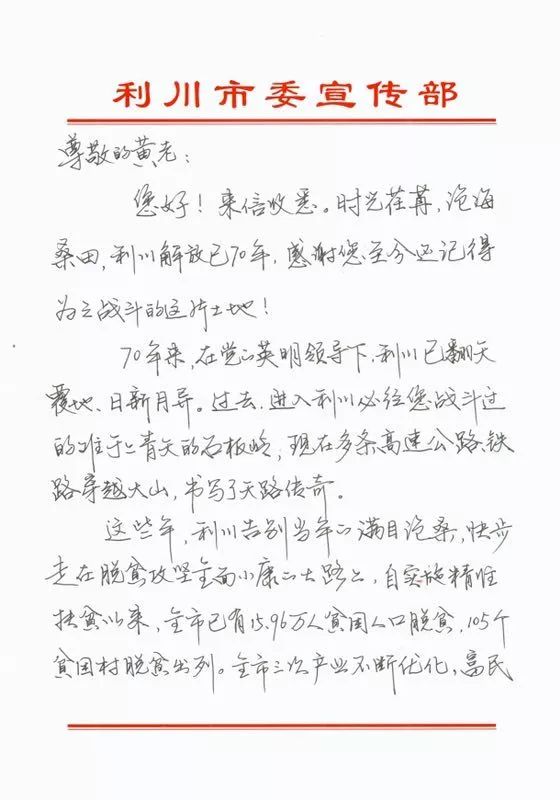 利川市委宣传部
尊敬的黄老：
您好！来信收悉。时光荏苒，沧海
桑田，利川解放已70年，感谢您至今还记得
为之战斗的这片土地！
70年来，在党的英明领导下，利川已翻天
覆地、日新月异。过去，进入利川必经您战斗过
的难于上青天的石板岭，现在多条高速公路、铁
路穿越大山，书写了天路传奇。
这些年，利川告别当年的满目沧桑，快步
走在脱贫攻坚全面小康的大路上，自实施精准
扶贫以来，全市已有15.96万人贫困人口脱贫，105个
贫困村脱贫出列。全市三次产业不断优化，富民